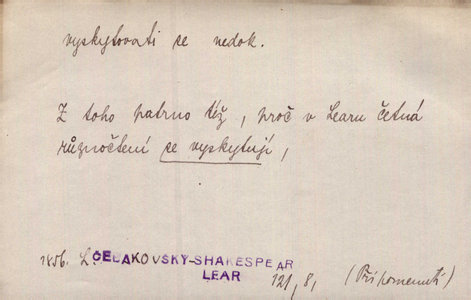 vyskytovati se nedok.
Z toho patrno též, proč v Learu četná
různočtení se vyskytují,
1856. L. ČELAKOVSKÝ-SHAKESPEAR
LEAR
121, 8,
(Připomenutí)